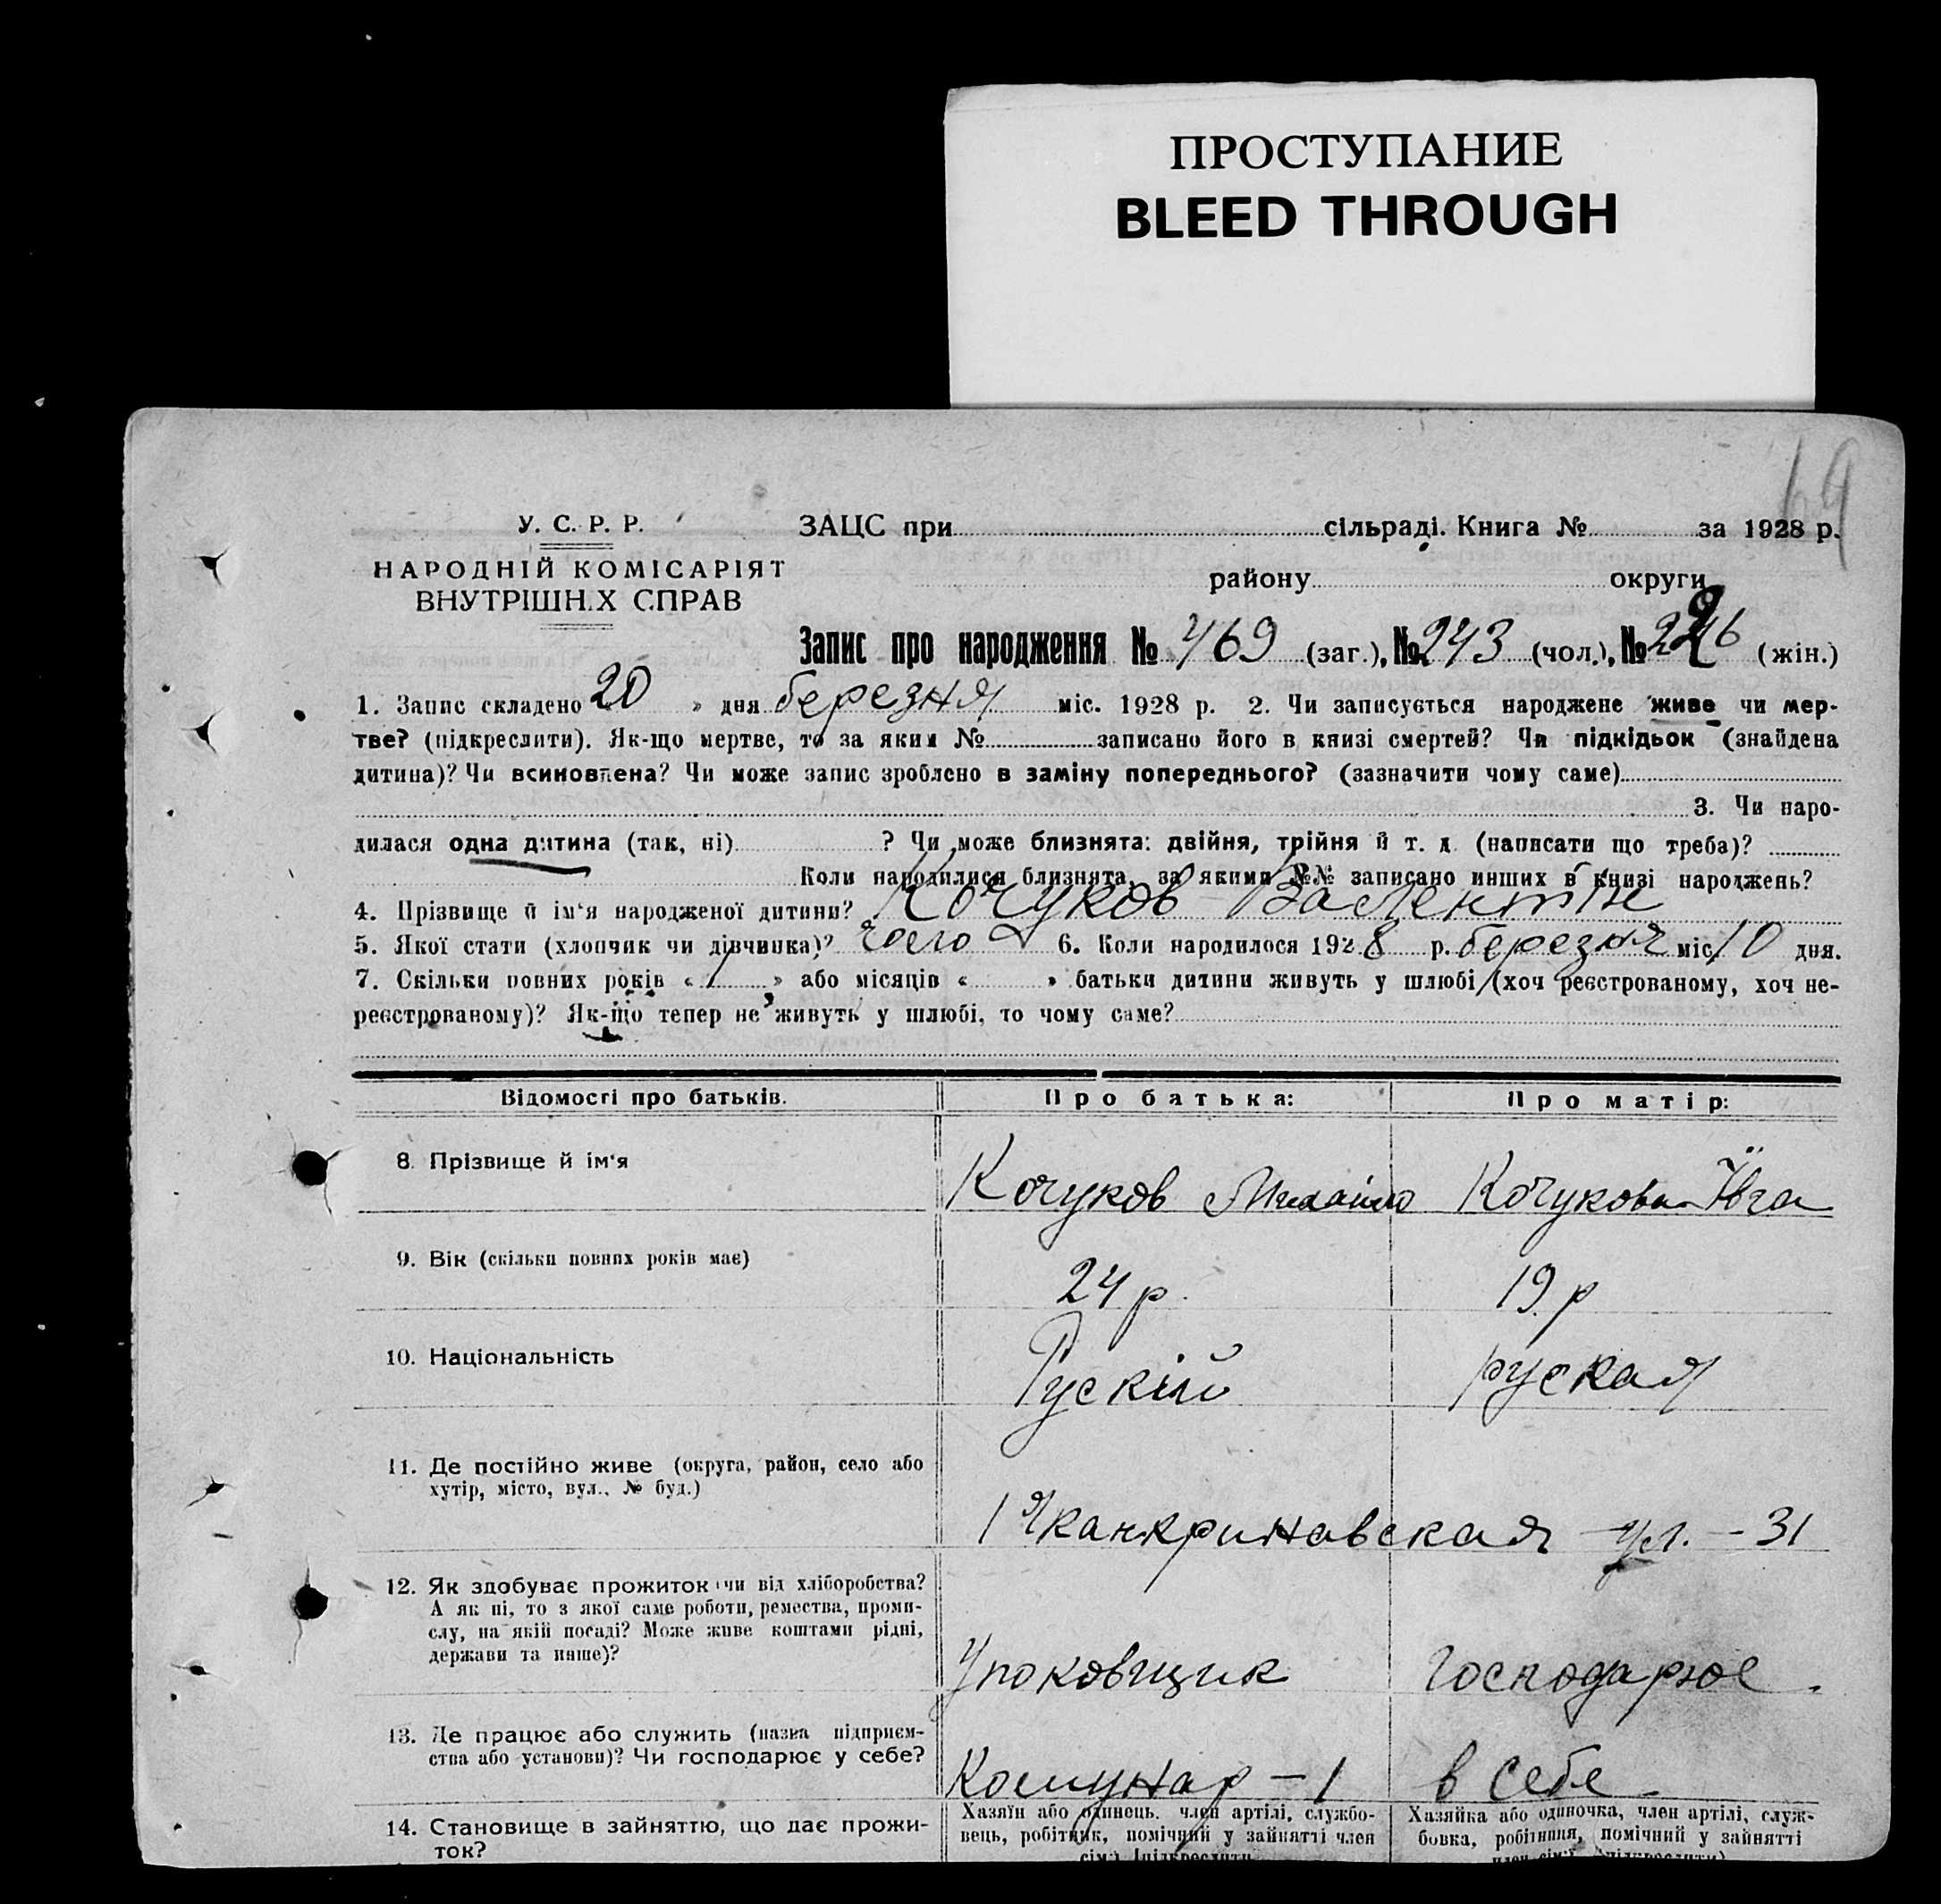 ПРОСТУПАНИЕ
BLEED THROUGH
69
У. С. Р. Р.
НАРОДНІЙ КОМІСАРІЯТ
ВНУТРІШНІХ СПРАВ
ЗАЦС при сільраді. Книга № за 1928 р.
району округи
Запис про народження № 469 (заг.), № 243 (чол.), № 226 (жін.)
1. Запис складено 20 » дня березня міс. 1928 р. 2. Чи записується народжене живе чи мер-
тве? (підкреслити). Як-що мертве, то за яким № записано його в книзі смертей? Чи підкідьок (знайдена
дитина)? Чи всиновлена? Чи може запис зроблено в заміну попереднього? (зазначити чому саме)
3. Чи наро-
дилася одна дитина (так, ні) ? Чи може близнята: двійня, трійня й т. д. (написати що треба)?
Коли народилися близнята, за якими №№ записано инших в книзі народжень?
4. Прізвище й ім'я народженої дитини? Кочуков Валентін
5. Якої стати (хлопчик чи дівчинка)? чоло 6. Коли народилося 1928 р. березня міс. 10 дня.
7. Скільки повних років « 1 » або місяців « » батьки дитини живуть у шлюбі (хоч реєстрованому, хоч не-
реєстрованому)? Як-що тепер не живуть у шлюбі, то чому саме?
Відомості про батьків. Про батька: Про матір:
8. Прізвище й ім'я Кочуков Михайло Кочукова Ївга
9. Вік (скільки повних років має) 24 р. 19 р
10. Національність Рускій руская
11. Де постійно живе (округа, район, село або
хутір, місто, вул., № буд.)
1 Я канкриновская ул. - 31
12. Як здобуває прожиток: чи від хліборобства?
А як ні, то з якої саме роботи, ремества, проми-
слу, на якій посаді? Може живе коштами рідні,
держави та инше)?
Упоковщик Господарює.
13. Де працює або служить (назва підприєм-
ства або установи)? Чи господарює у себе?
Комунар - 1 в себе
14. Становище в зайняттю, що дає прожи-
ток?
Хазяїн або одинець, член артілі, службо-
вець, робітник, помічний у зайнятті член
сім'ї (підкреслити
Хазяйка або одиночка, член артілі, служ-
бовка, робітниця, помічний у зайнятті
член сім'ї (підкреслити)